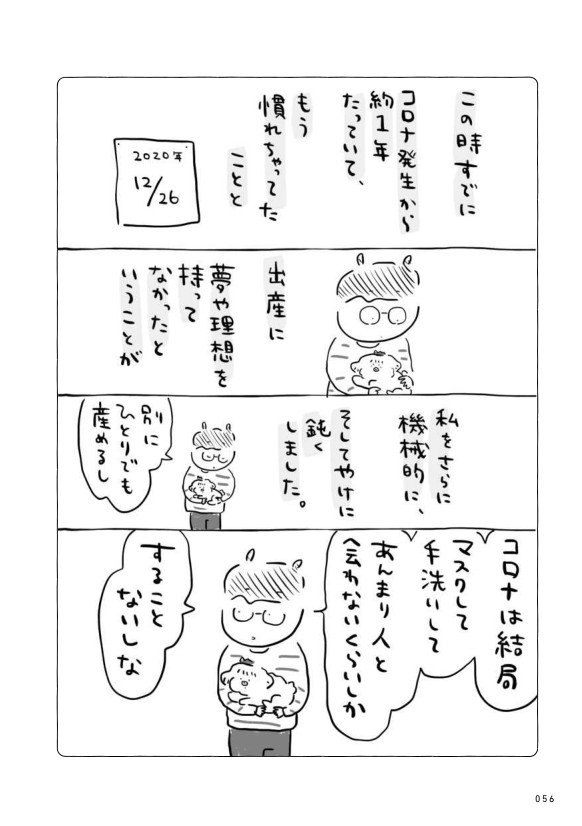 この時すでに
コロナ発生から
約1年
たっていて、
もう
慣れちゃってた
ことと
2020年
12/26
出産に
夢や理想を
持って
なかったと
いうことが
私をさらに
機械的に、
そしてやけに
鈍く
しました。
別に
ひとりでも
産めるし
コロナは結局
マスクして
手洗いして
あんまり人と
会わないくらいしか
すること
ないしな
056